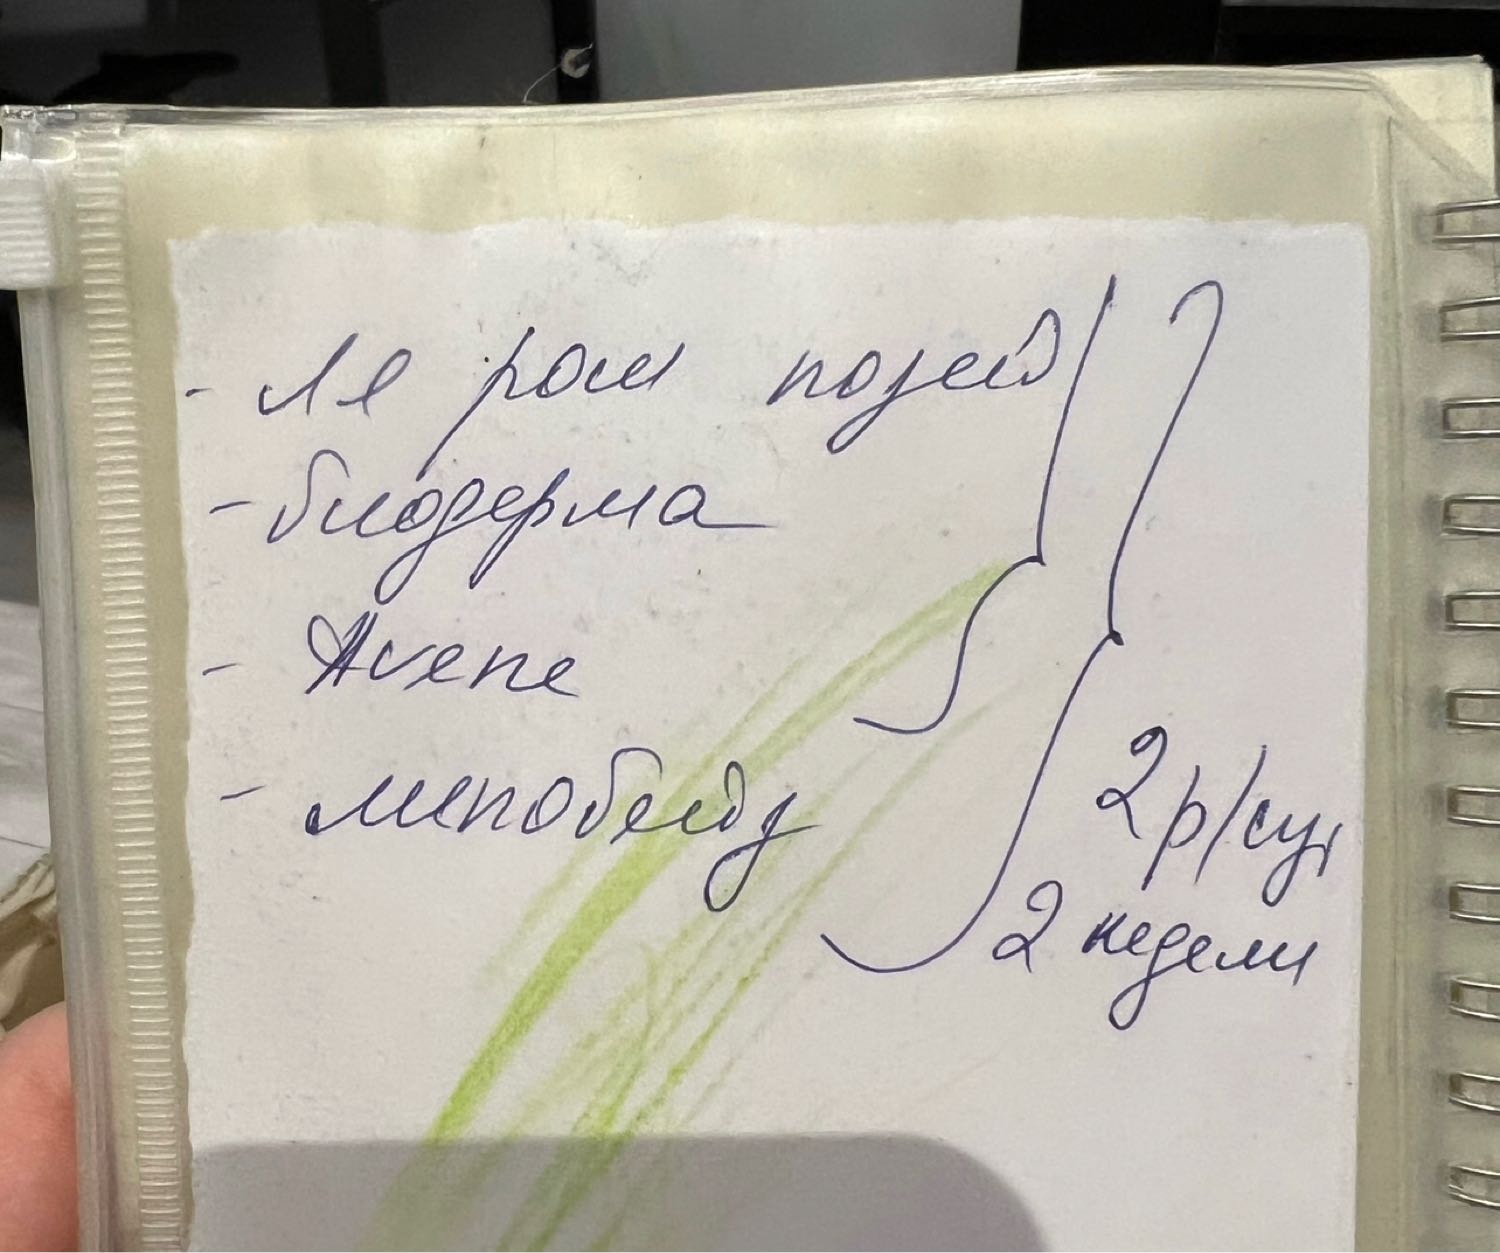 - Ля рош позей
- биодерма
- Avene
- липобейз
2 р/сут
2 недели